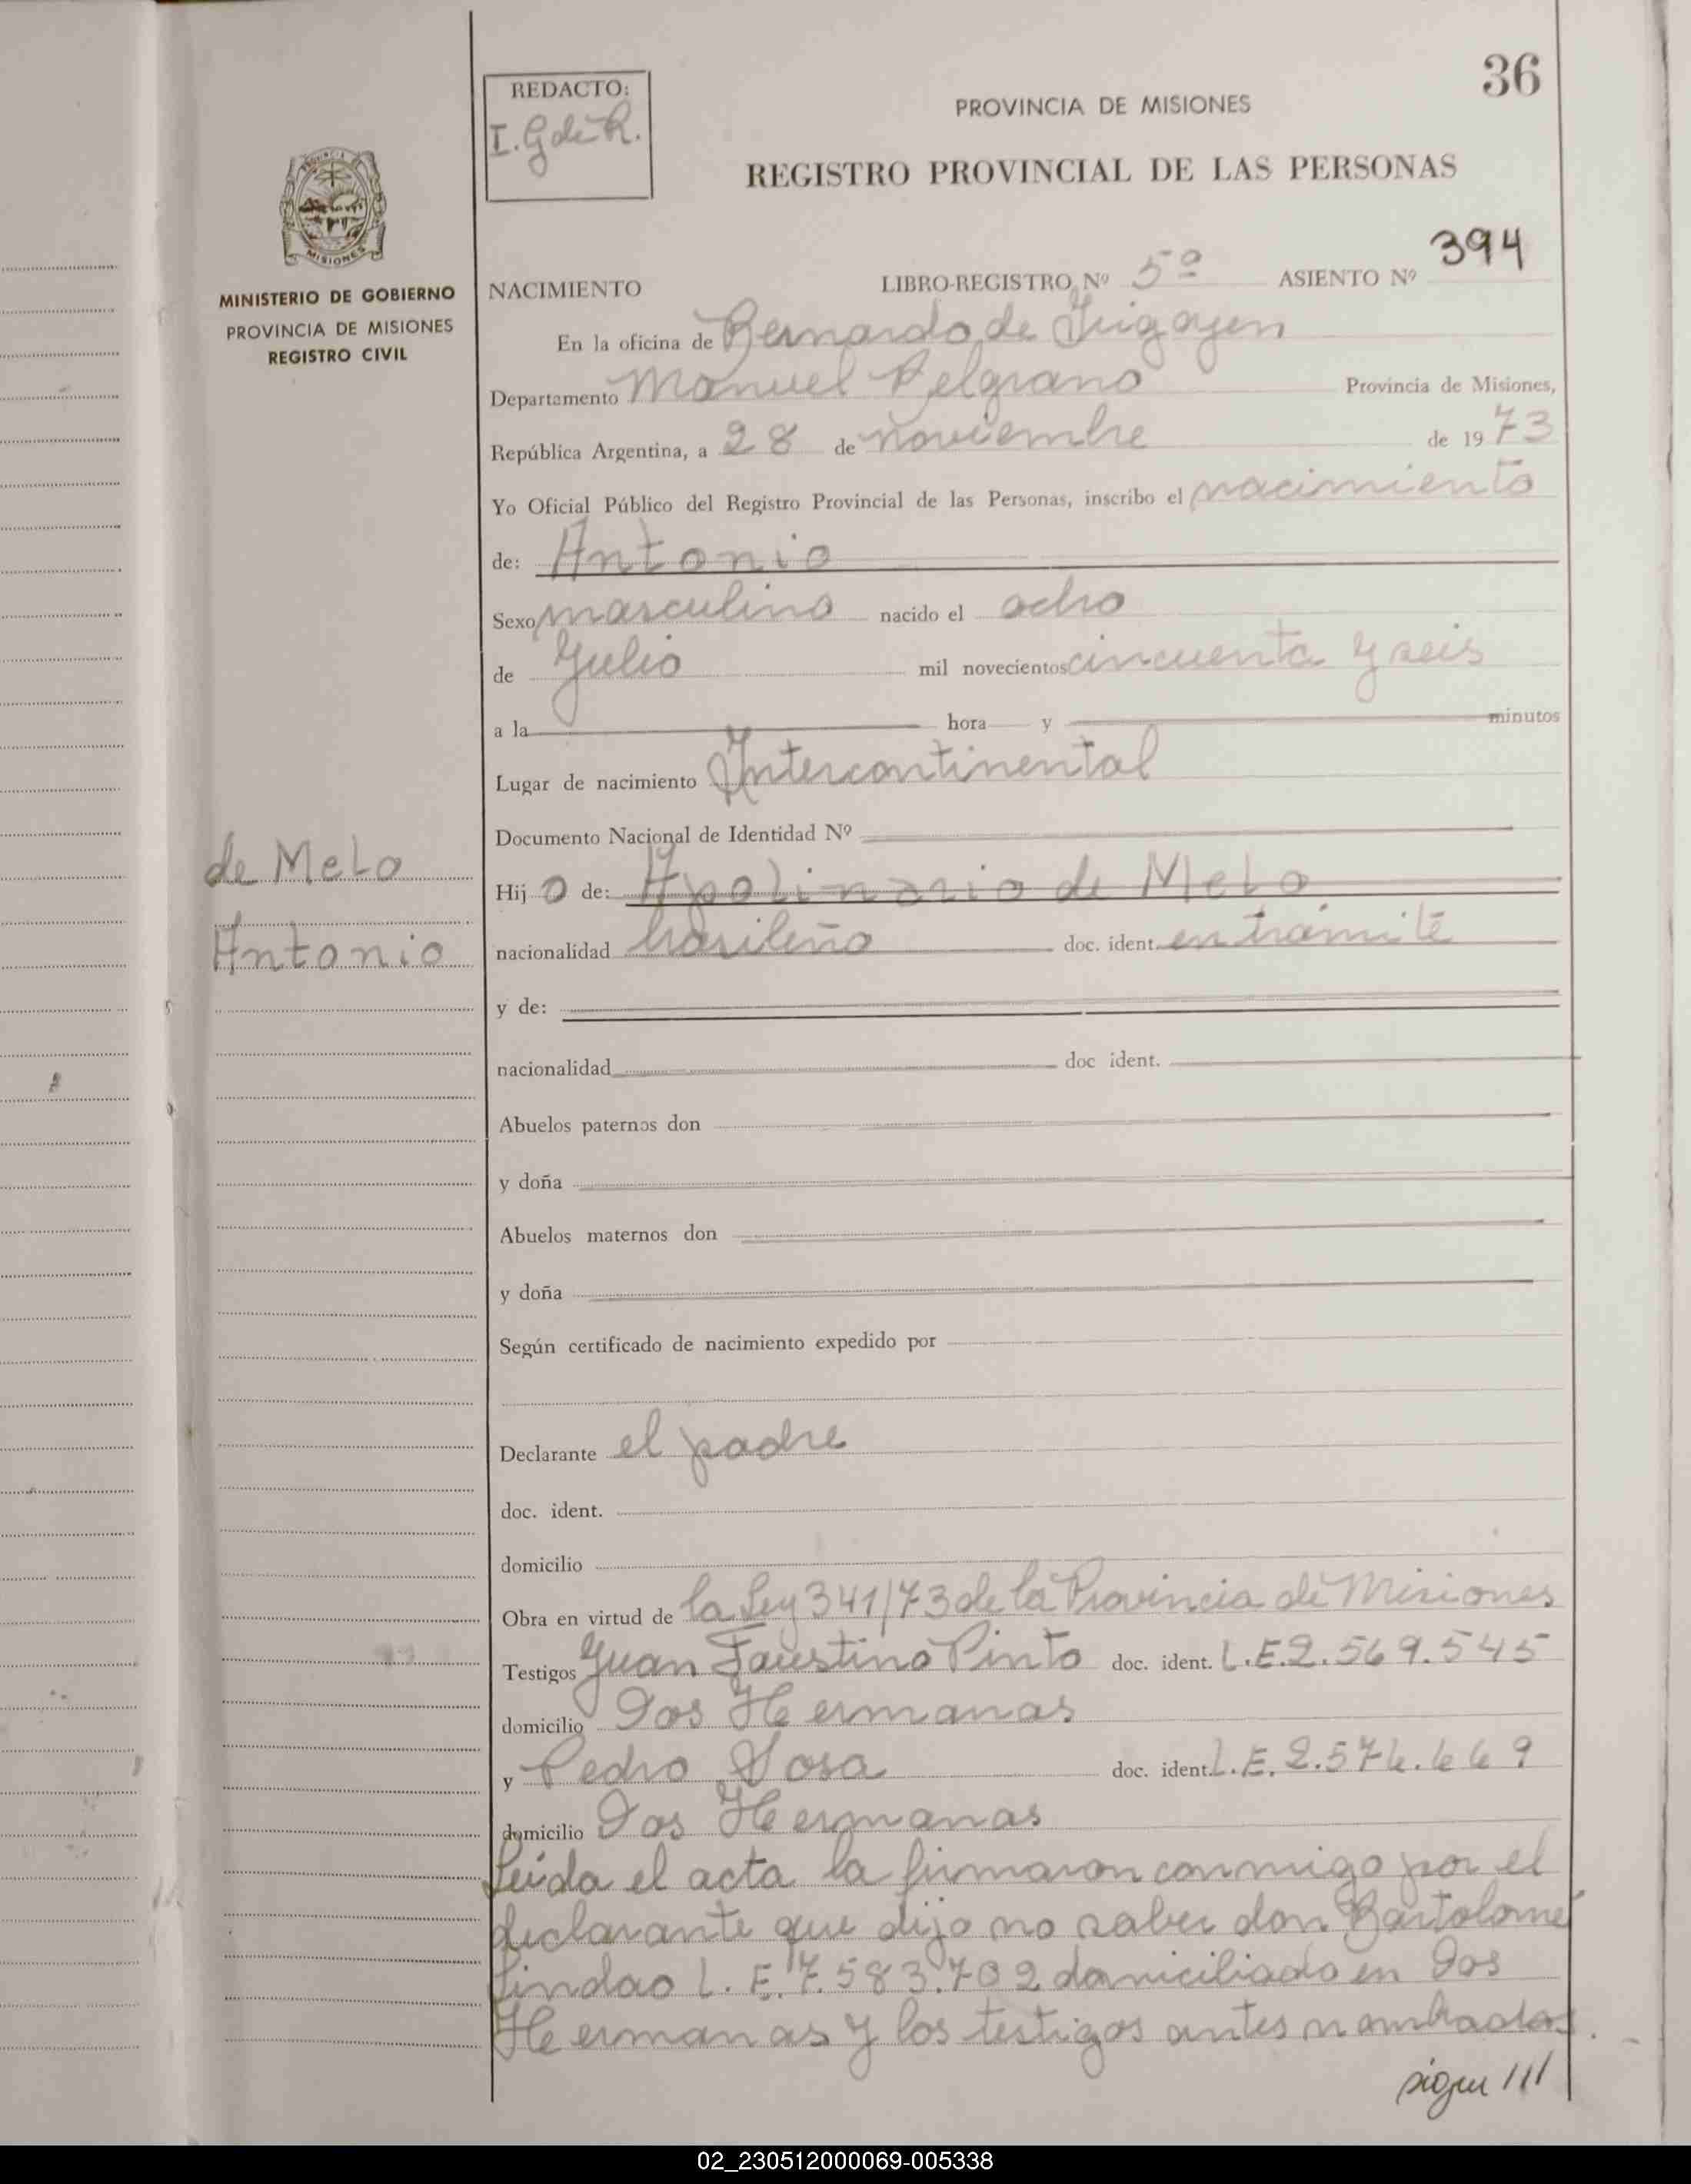 36
REDACTO:
I. G de R.
PROVINCIA DE MISIONES
REGISTRO PROVINCIAL DE LAS PERSONAS
MISIONES
MINISTERIO DE GOBIERNO
PROVINCIA DE MISIONES
REGISTRO CIVIL
NACIMIENTO LIBRO-REGISTRO Nº 5º ASIENTO Nº 394
En la oficina de Bernardo de Irigoyen
Departamento Manuel Belgrano Provincia de Misiones,
República Argentina, a 28 de noviembre de 1973
Yo Oficial Público del Registro Provincial de las Personas, inscribo el nacimiento
de: Antonio
Sexo masculino nacido el ocho
de Julio mil novecientos cincuenta y seis
a la hora y minutos
Lugar de nacimiento Intercontinental
Documento Nacional de Identidad Nº
de Melo
Antonio
Hijo de: Apolinario de Melo
nacionalidad brasileño doc. ident. en trámite
y de:
nacionalidad doc ident.
Abuelos paternos don
y doña
Abuelos maternos don
y doña
Según certificado de nacimiento expedido por
Declarante el padre
doc. ident.
domicilio
Obra en virtud de la Ley 341/73 de la Provincia de Misiones
Testigos Juan Faustino Pinto doc. ident. L.E.2.569.545
domicilio Dos Hermanas
y Pedro Sosa doc. ident. L.E.2.574.669
domicilio Dos Hermanas
Leida el acta la firmaron conmigo por el
declarante que dijo no saber don Bartolomé
L.E.7.583.702 domiciliado en Dos
Hermanas y los testigos antes nombrados.
sigue ///
02_230512000069-005338